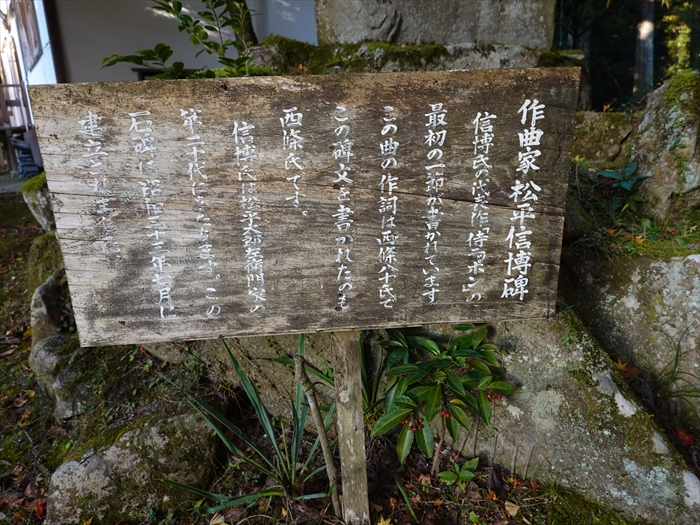 作曲家・松平信博碑
信博氏の代表作「侍ニッポン」の
最初の一節が書かれています
この曲の作詞は西條八十氏で
この碑文を書かれたのも
西條氏です。
信博氏は松平太郎左衛門家の
第二十代にあたります。この
石碑は昭和三十二年七月に
建立されました。